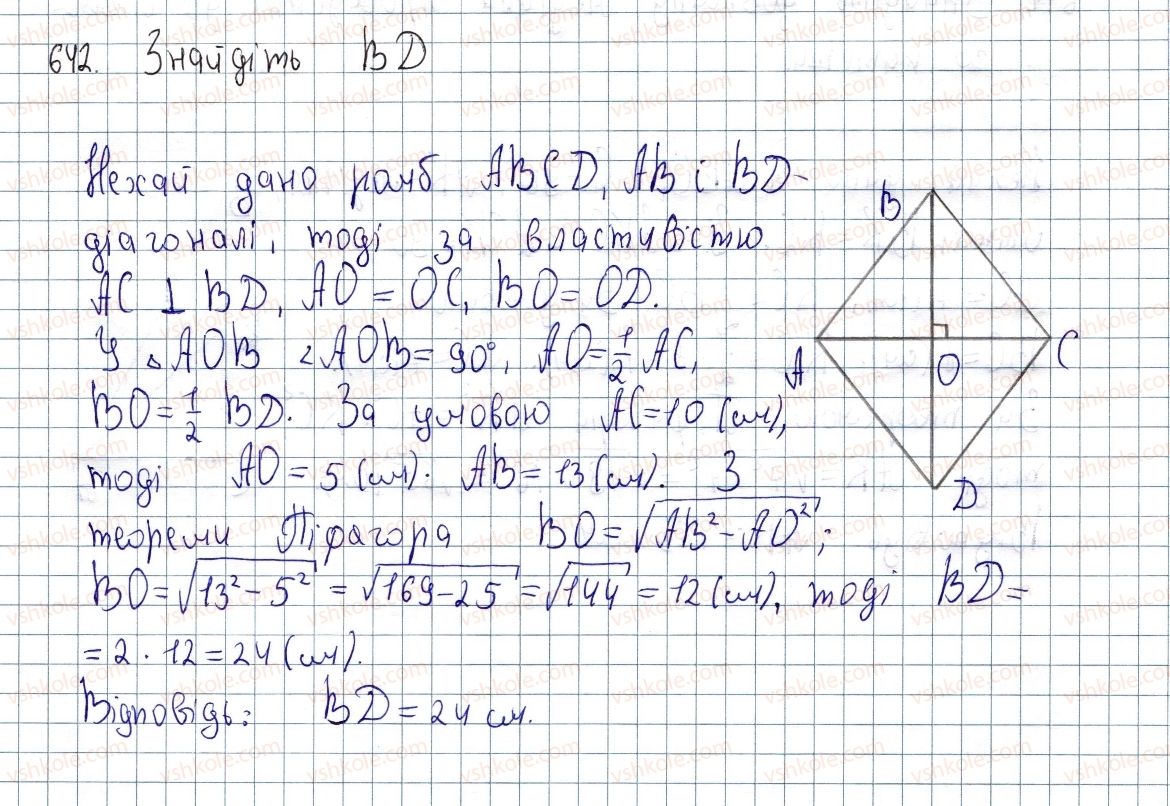 642. Знайдіть BD
Нехай дано ромб ABCD, AB і BD-
діагоналі, тоді за властивістю
AC ⊥ BD, AO = OC, BO = OD.
У △AOB ∠AOB = 90°, AO = 1/2 AC,
BO = 1/2 BD. За умовою AC = 10 (см),
тоді AO = 5 (см). AB = 13 (см). З
теореми Піфагора BO = √(AB² - AO²);
BO = √(13² - 5²) = √(169 - 25) = √144 = 12 (см), тоді BD =
= 2 · 12 = 24 (см).
Відповідь: BD = 24 см.
B
A
O
C
D